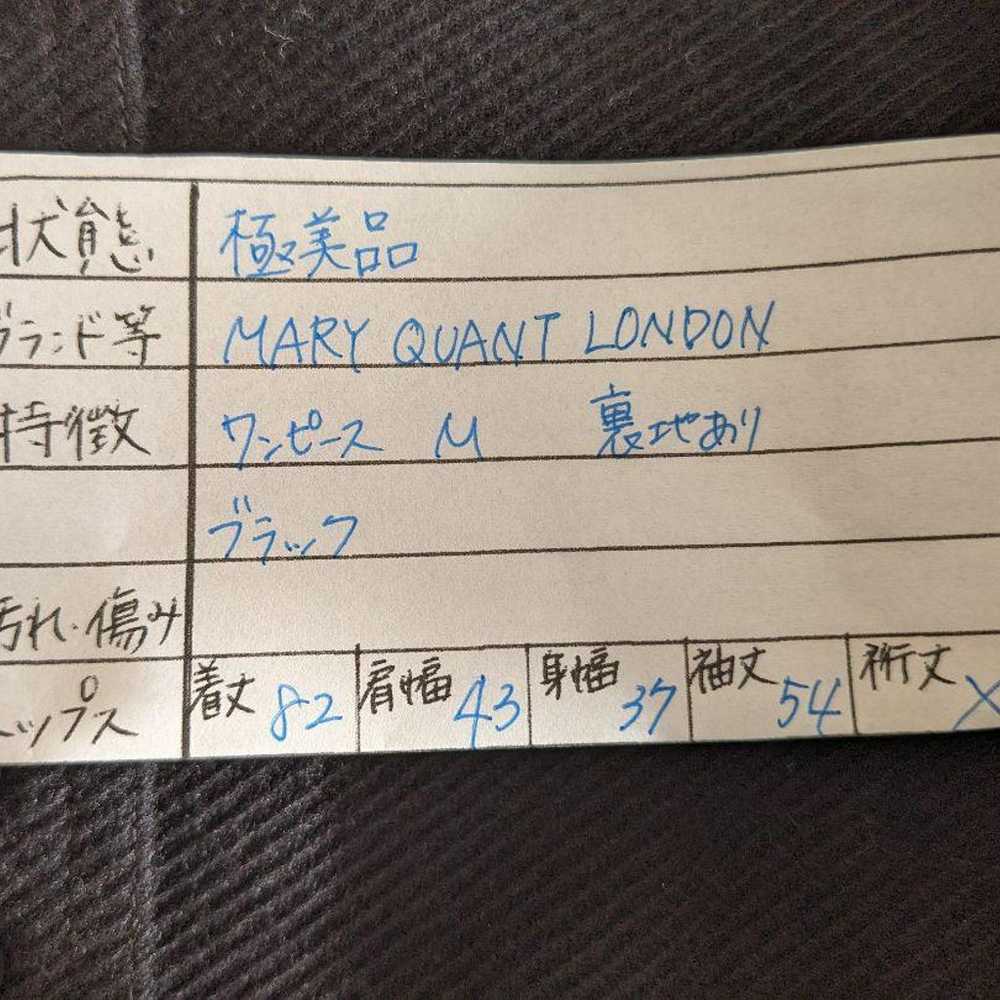 状態 極美品
ブランド等 MARY QUANT LONDON
特徴 ワンピース M 裏地あり
ブラック
汚れ・傷み
トップス 着丈 82 肩幅 43 身幅 37 袖丈 54 裄丈 ×